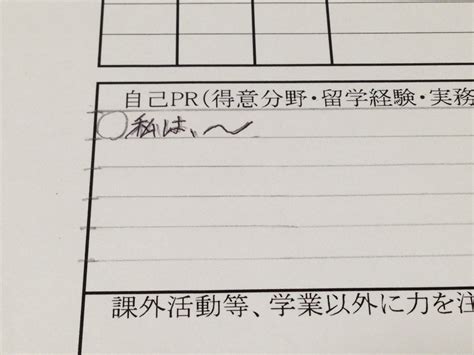 自己PR(得意分野・留学経験・実務
○私は、〜
課外活動等、学業以外に力を注